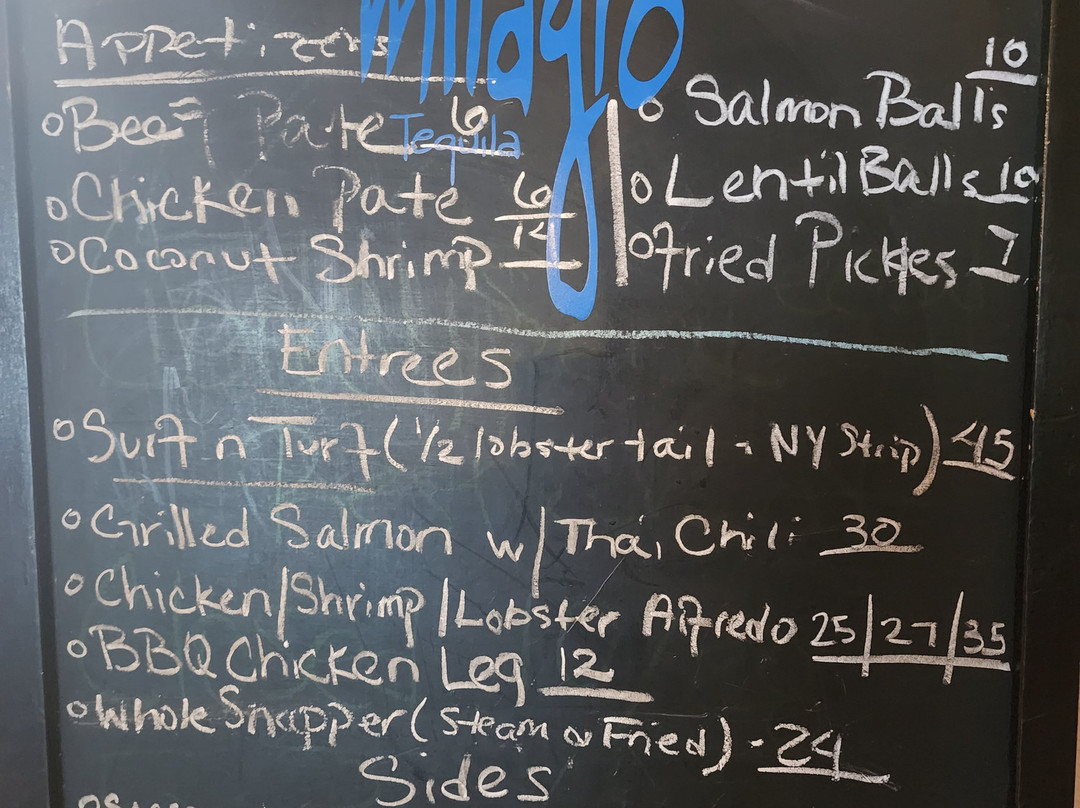 milagro
Tequila
Appetizers
Beef Pate 6
Chicken Pate 6
Coconut Shrimp 12
Salmon Balls 10
Lentil Balls 10
Fried Pickles 7
Entrees
Surf n Turf (1/2 lobster tail - NY Strip) 45
Grilled Salmon w/ Thai Chili 30
Chicken/Shrimp/Lobster Alfredo 25/27/35
BBQ Chicken Leg 12
Whole Snapper (Steam or Fried) - 24
Sides